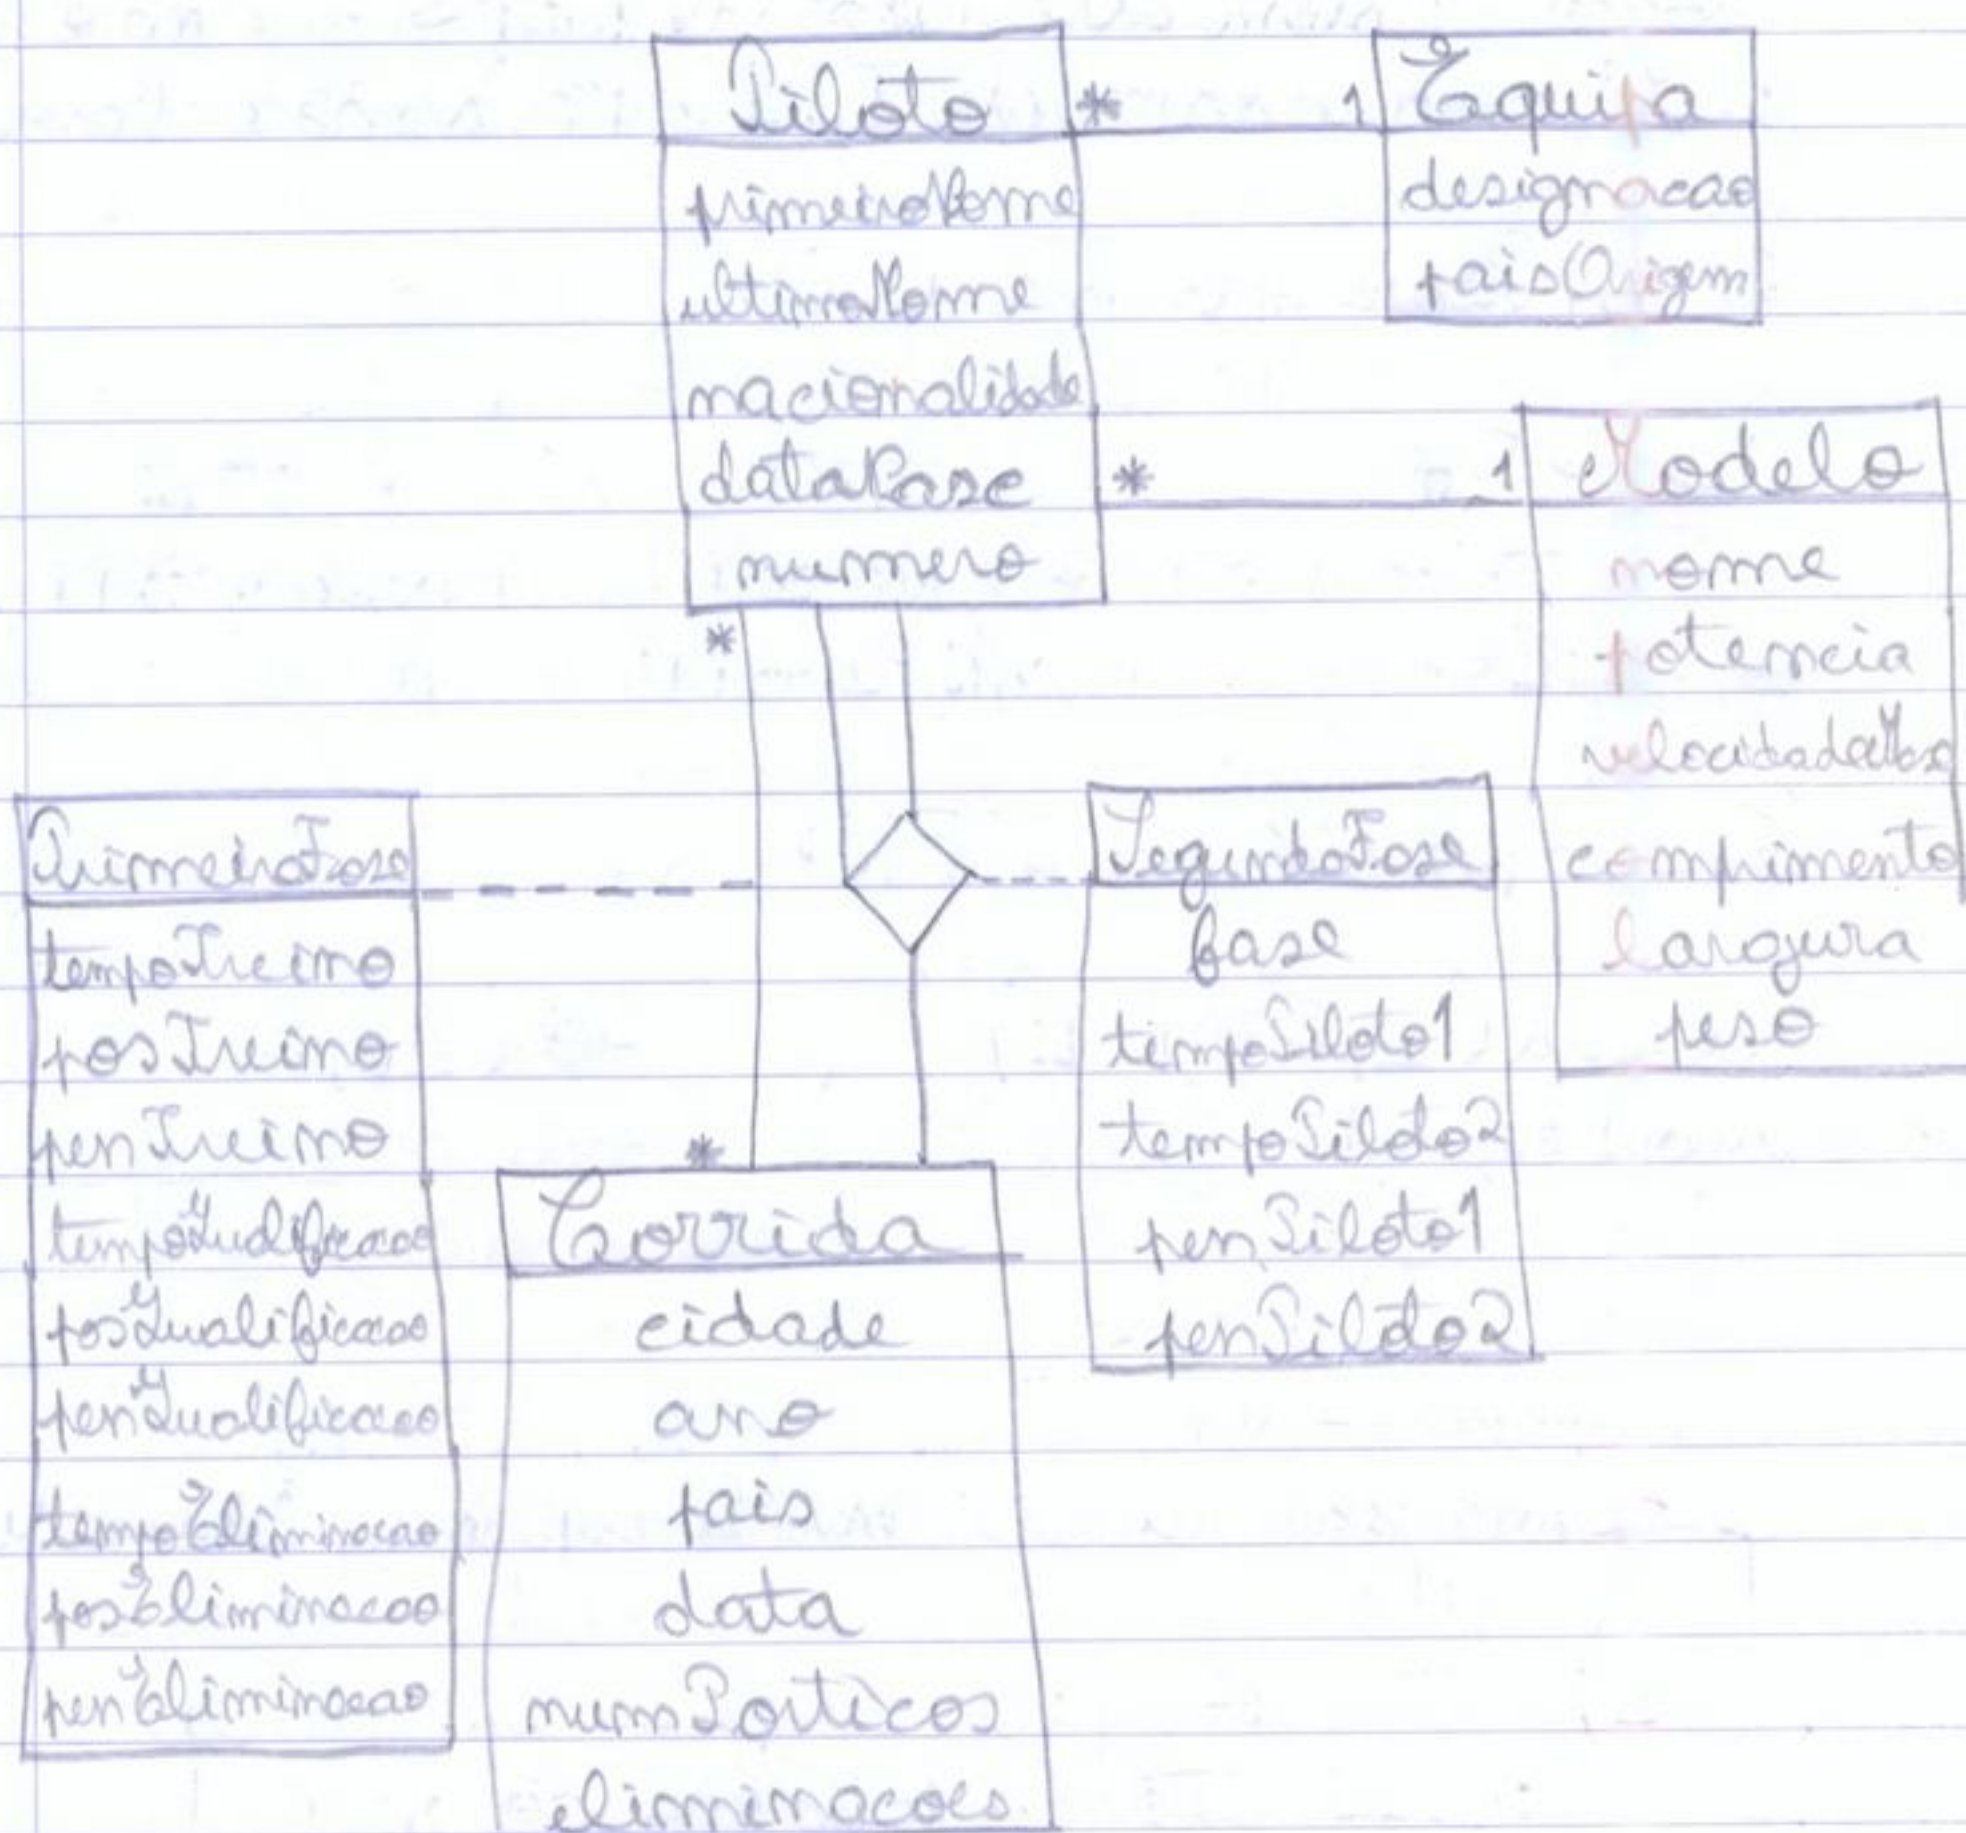 Piloto
primeiroNome
ultimoNome
nacionalidade
dataNasc
numero
*
1
Equipa
designacao
paisOrigem
*
1
Modelo
nome
potencia
velocidadeMax
comprimento
largura
peso
*
*
PrimeiraFase
tempoTreino
posTreino
penTreino
tempoQualificacao
posQualificacao
penQualificacao
tempoEliminacao
posEliminacao
penEliminacao
SegundaFase
fase
tempoPiloto1
tempoPiloto2
penPiloto1
penPiloto2
Corrida
cidade
ano
pais
data
numPorticos
eliminacoes